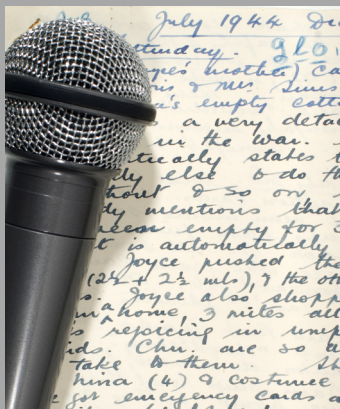 July 1944
glo
mother) Ca
is & Mrs. Sims
's empty cott
a very deta
in the war.
tically states t
ly else to do th
thout & so on
dy mentions that
been empty for 3
t is automatically
Joyce pushed the
(2½ + 2½ mls), & the oth
s. Joyce also shopp
home, 3 miles all
s rejoicing in unex
ids. Chn. are so a
take to them. Sh
hina (4) & costume
got emergency cards a